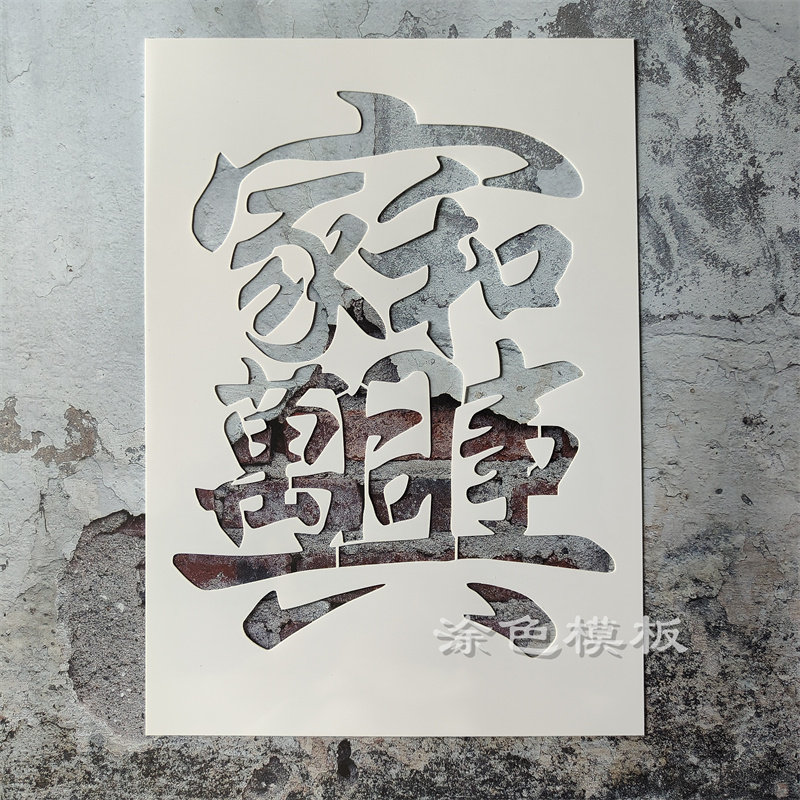 家和萬事興
涂色模板